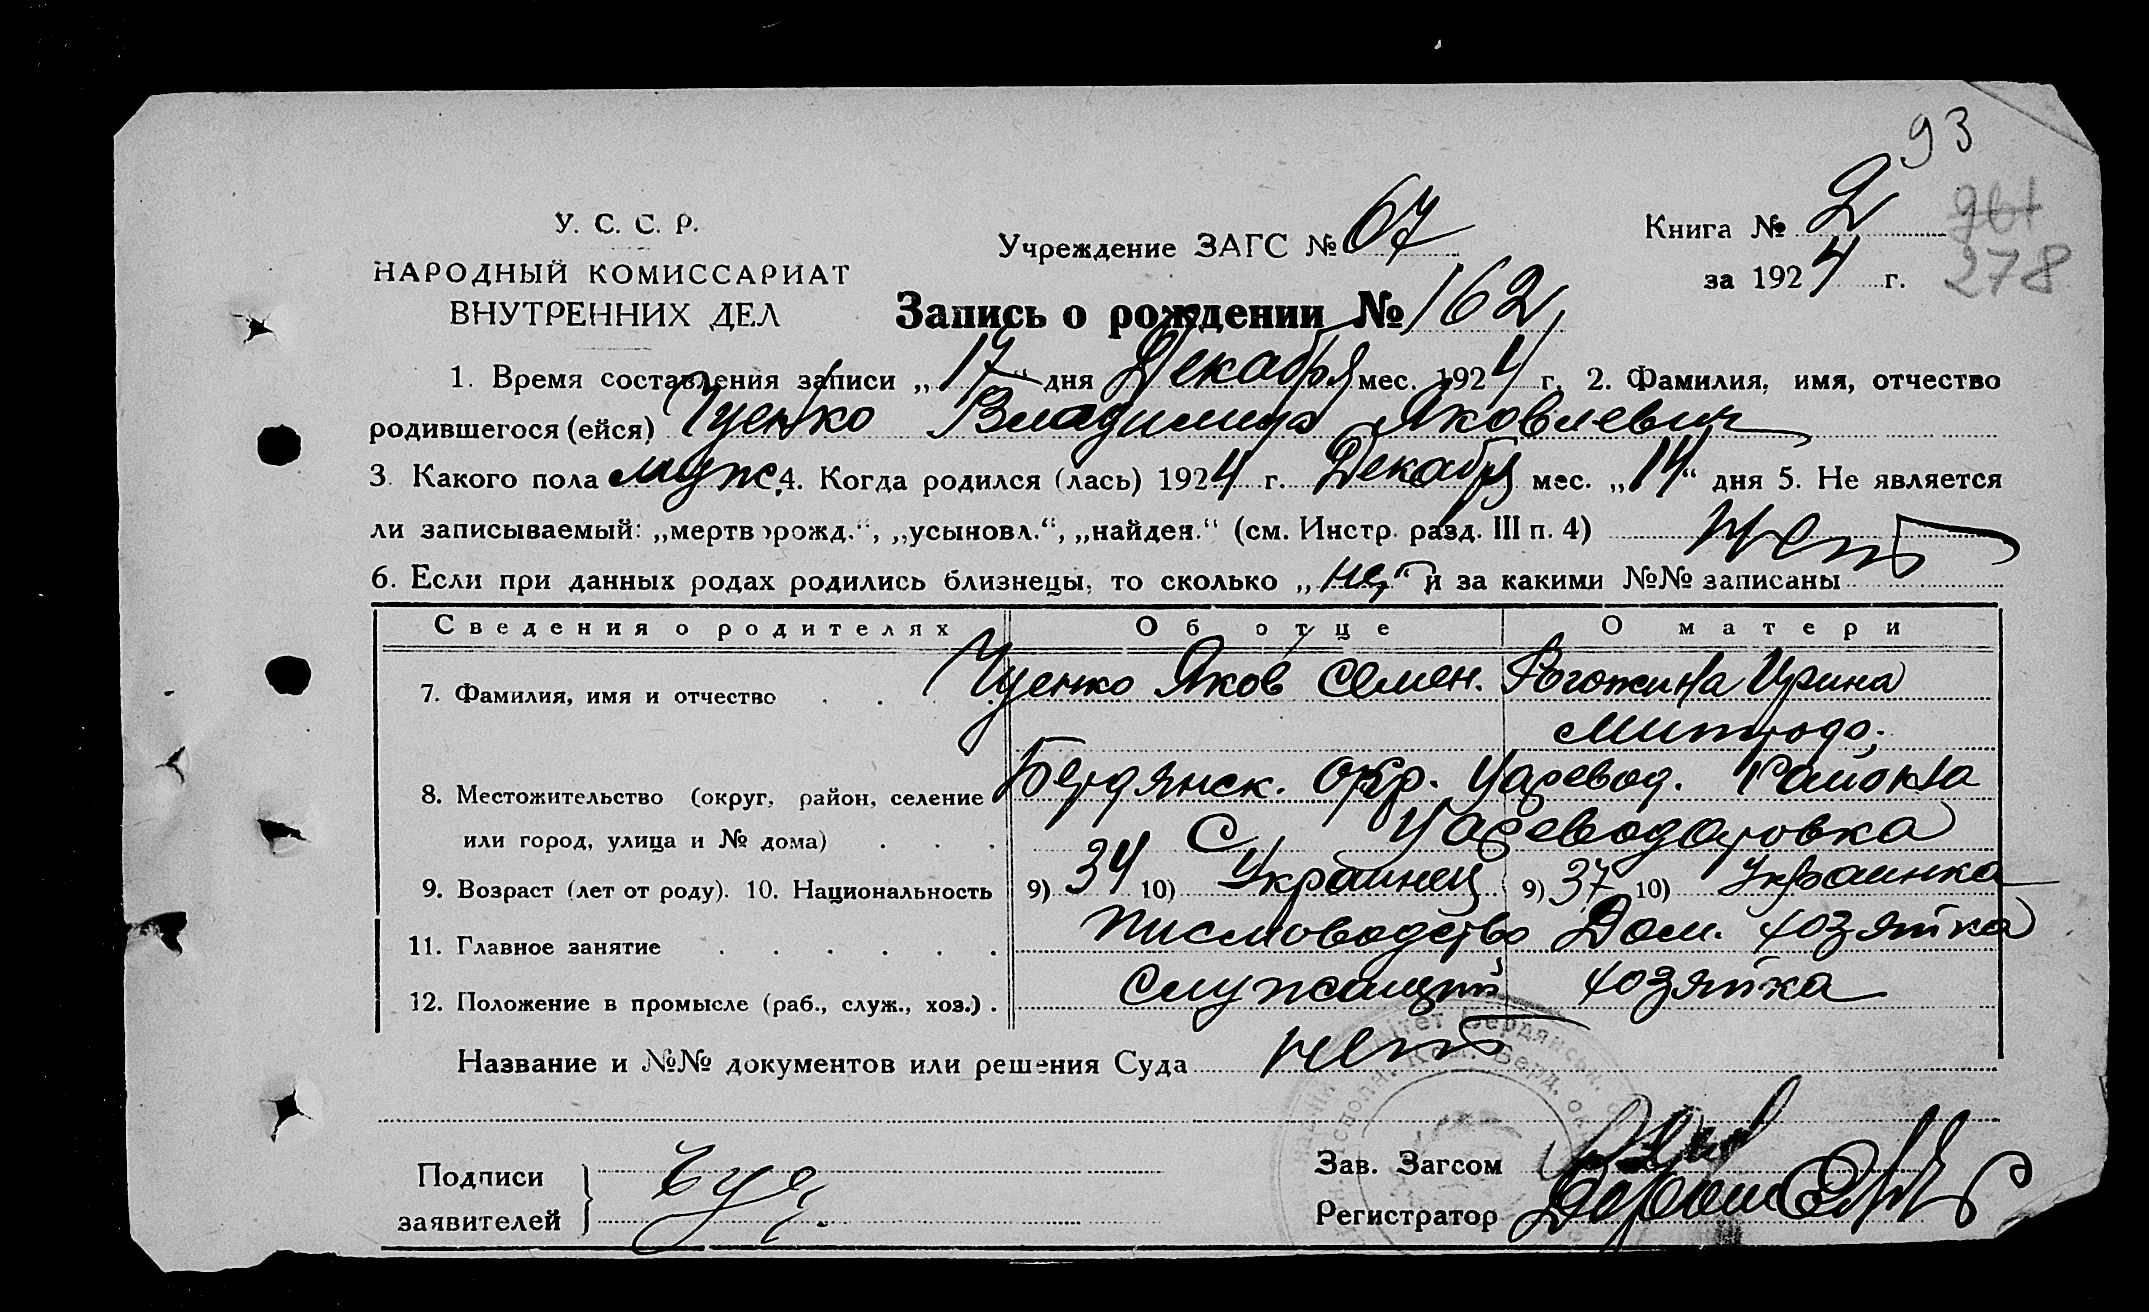 93
У. С. С. Р.
Учреждение ЗАГС № 67
Книга № 2
961
НАРОДНЫЙ КОМИССАРИАТ
за 1924 г.
278
ВНУТРЕННИХ ДЕЛ
Запись о рождении № 162
1. Время составления записи „17“ дня Декабря мес. 1924 г. 2. Фамилия, имя, отчество
родившегося (ейся) Яковлевич
3. Какого пола муж. 4. Когда родился (лась) 1924 г. Декабря мес. „14“ дня 5. Не является
ли записываемый: „мертворожд.“, „усыновл.“, „найден.“ (см. Инстр. разд. III п. 4) Нет
6. Если при данных родах родились близнецы, то сколько „нет“ и за какими №№ записаны
Сведения о родителях Об отце О матери
7. Фамилия, имя и отчество Яков Семен. Рогожина Ирина
Митрофо.
8. Местожительство (округ, район, селение Бердянск. Окр. Царевод. Района
или город, улица и № дома) С. Цареводаровка
9. Возраст (лет от роду). 10. Национальность 9) 34 10) Украинец 9) 37 10) Украинка
11. Главное занятие письмоводство Дом. хозяйка
12. Положение в промысле (раб., служ., хоз.) служащий хозяйка
Название и №№ документов или решения Суда нет
Подписи
заявителей
Зав. Загсом
Регистратор